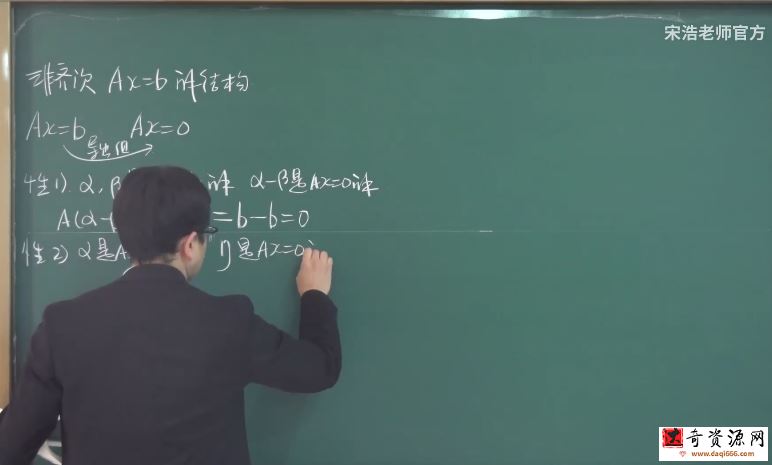 宋浩老师官方
非齐次 Ax=b 解结构
Ax=b Ax=0
导出组
性1) α, β 解 α-β是Ax=0解
A(α- =b-b=0
性2) α是A η是Ax=0
大奇资源网
www.daqi666.com